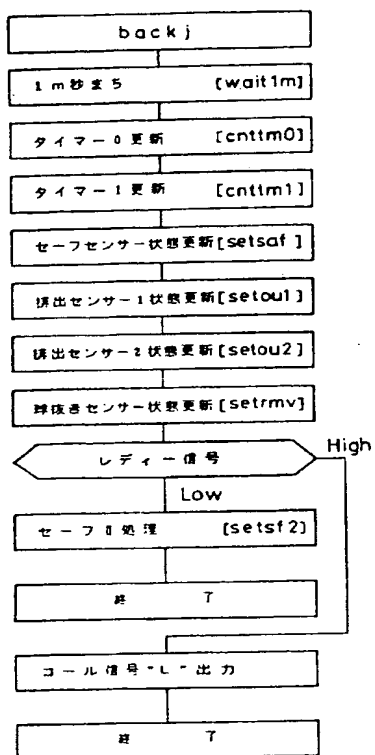 backj
1m秒まち [wait1m]
タイマー0更新 [cnttm0]
タイマー1更新 [cnttm1]
セーフセンサー状態更新[setsaf ]
排出センサー1状態更新[setou1]
排出センサー2状態更新[setou2]
球抜きセンサー状態更新[setrmv]
レディー信号
High
Low
セーフⅡ処理 [setsf2]
終 了
コール信号"L"出力
終 了